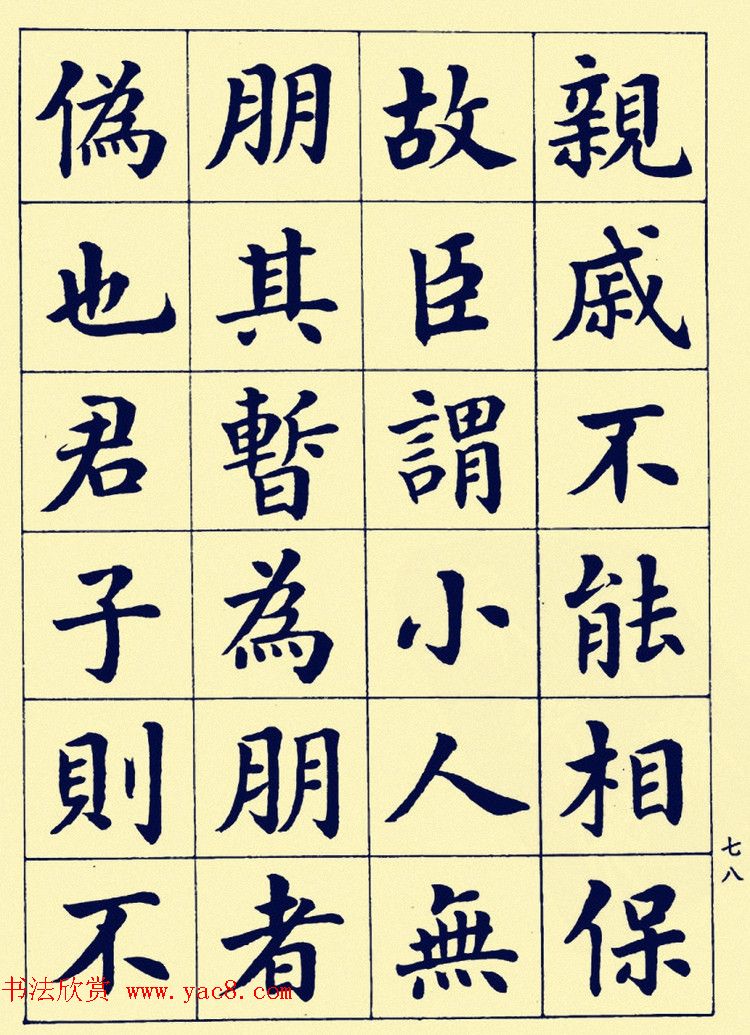 親戚不能相保
故臣謂小人無
朋其暫為朋者
偽也君子則不
七八
书法欣赏 www.yac8.com